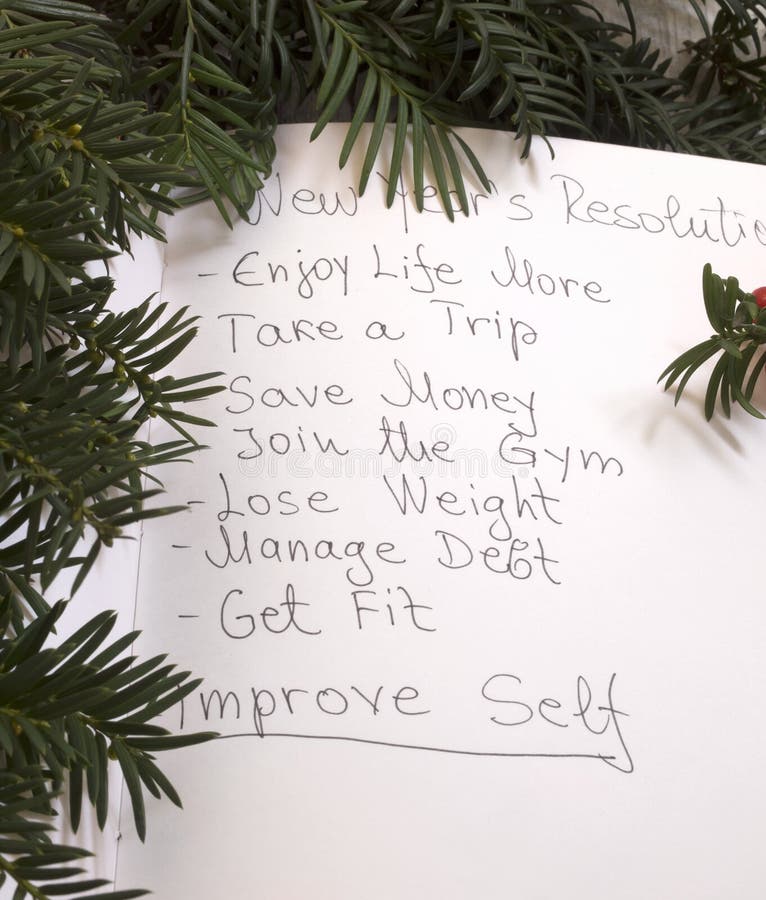 New Year's Resolutio
- Enjoy Life More
Take a Trip
Save Money
Join the Gym
- Lose Weight
- Manage Debt
- Get Fit
Improve Self
dreamstime